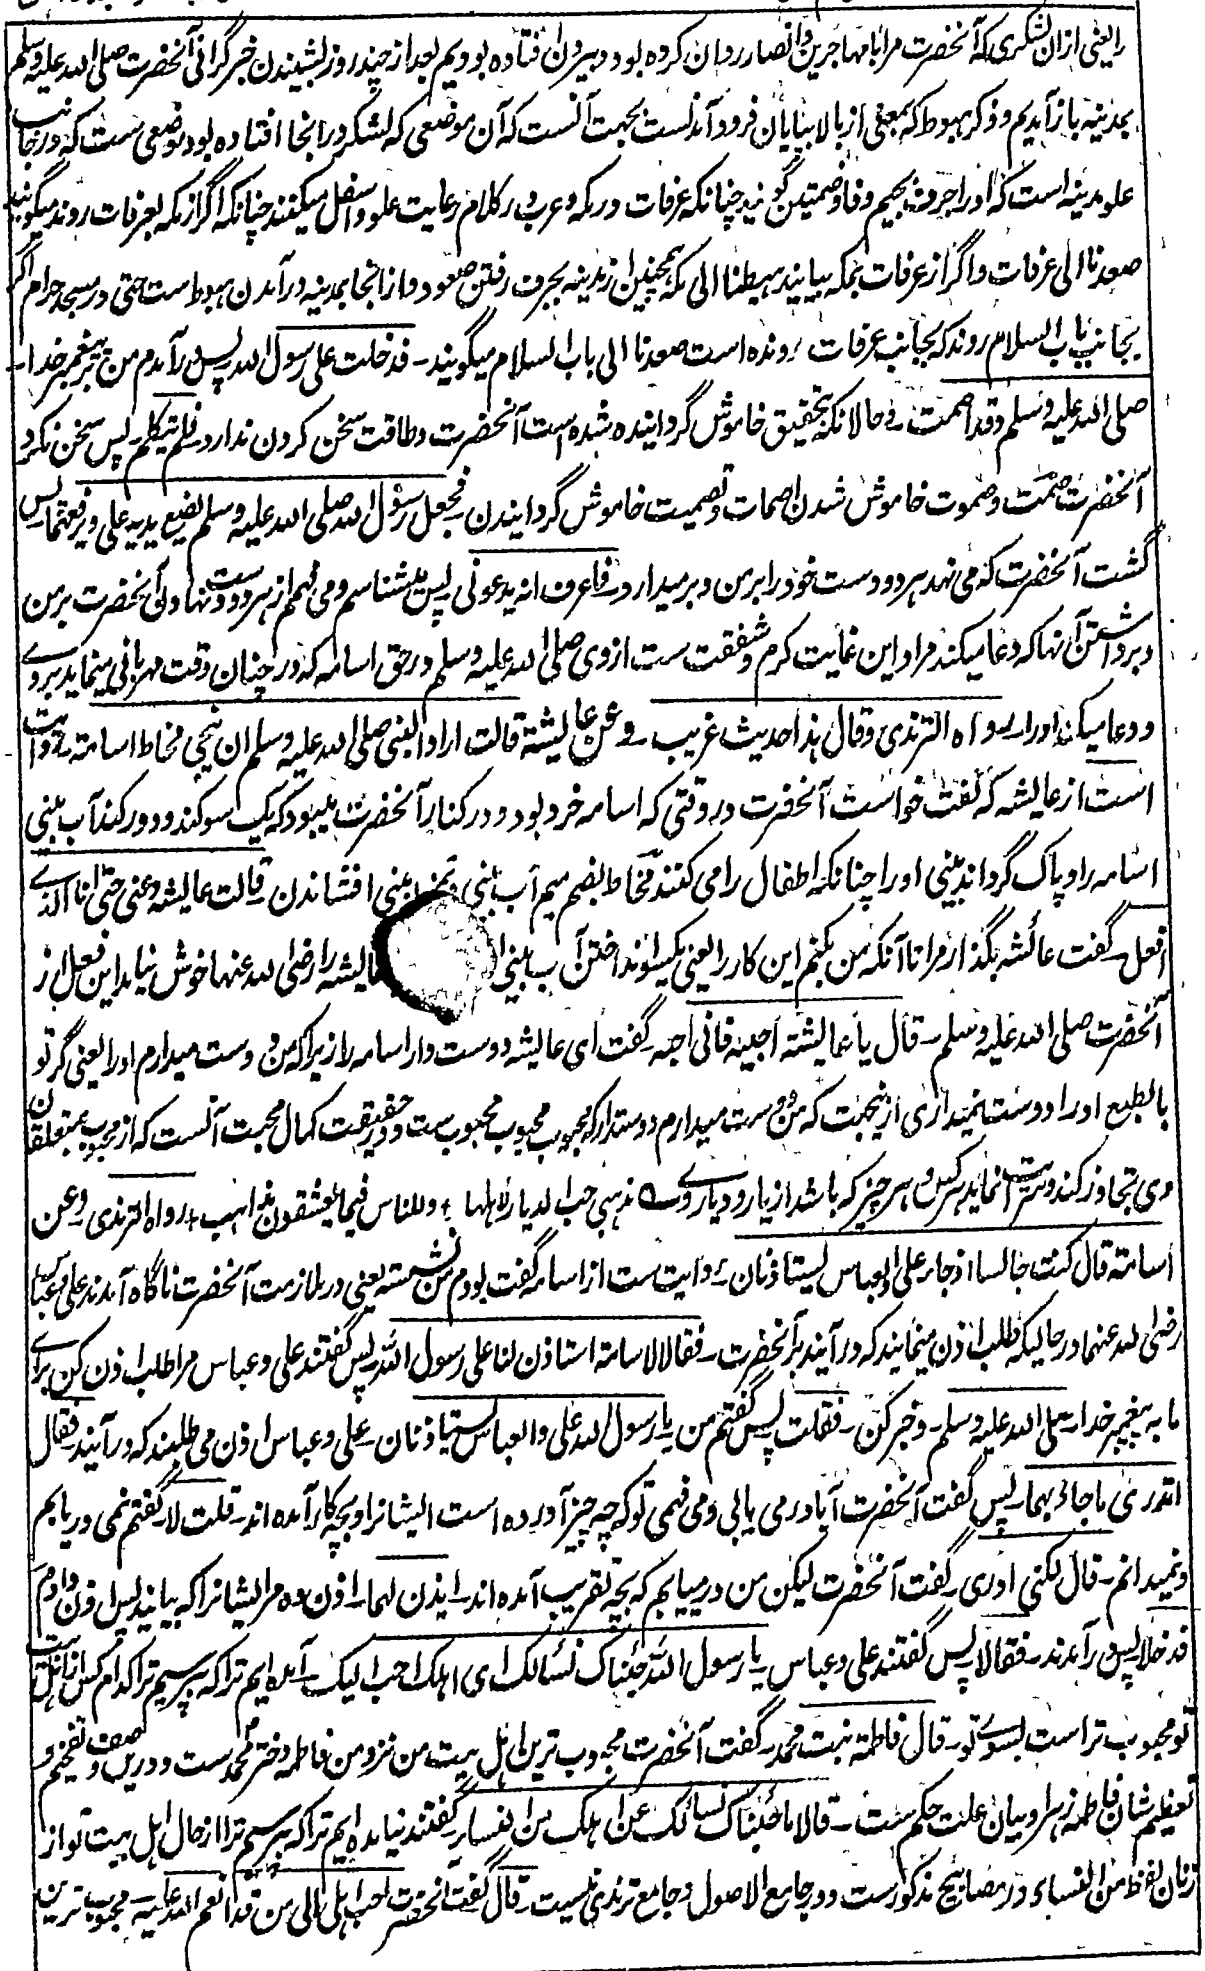 یعنی ازان لشکری که آنحضرت مرا با مهاجرین و انصار روان کرده بود و بیرون افتاده بودیم بعد از چند روز بشنیدن خبر گرانی آنحضرت صلی الله علیه وسلم
بمدینه باز آمدیم و ذکر هبوط که بمعنی از بالا بپایان فرود آمدنست بجهت آنست که آن موضعی که لشکر در انجا افتاده بود موضعی ست که در جانب
علو مدینه است که او را جرف بجیم و فا و ضمتین گویند چنانکه عرفات در مکه و عرب در کلام رعایت علو و اسفل میکنند چنانکه اگر از مکه بعرفات روند میگویند
صعدنا الی عرفات و اگر از عرفات بمکه بیایند هبطنا الی مکه همچنین از مدینه بجرف رفتن صعود و از انجا بمدینه در آمدن هبوط ست حتی در مسجد حرام اگر
بجانب باب السلام روند که بجانب عرفات رونده است صعدنا الی باب السلام میگویند ـ فدخلت علی رسول الله پس در آمدم من بر پیغمبر خدا ـ
صلی الله علیه وسلم وقد اصمت ـ و حالانکه بتحقیق خاموش گردانیده شده است آنحضرت و طاقت سخن کردن ندارد ـ فلم یتکلم ـ پس سخن نکرد
آنحضرت صمت و صموت خاموش شدن اصمات و تصمیت خاموش گردانیدن ـ فجعل رسول الله صلی الله علیه وسلم یضع یدیه علی ویرفعهما ـ پس
گشت آنحضرت که می نهد هر دو دست خود را بر من و بر میدارد ـ فاعرف انه یدعو لی پس میشناسم و می فهمم از هر دو دست نهادن آنحضرت بر من
و برداشتن آنها که دعا میکند مرا و این غایت کرم و شفقت ست از وی صلی الله علیه وسلم در حق اسامه که در چنان وقت مهربانی مینماید بروے
و دعا میکند او را ـ رواه الترمذی وقال هذا حدیث غریب ـ وعن عایشة قالت اراد النبی صلی الله علیه وسلم ان ینحی مخاط اسامة ـ روایت
است از عایشه که گفت خواست آنحضرت در وقتی که اسامه خرد بود و در کنار آنحضرت میبود که یک سو کند و دور کند آب بینی
اسامه را و پاک گرداند بینی او را چنانکه اطفال را می کنند مخاط بضم میم آب بینی و بینی افشاندن ـ قالت عایشه دعنی حتی انا الذے
افعل ـ گفت عائشه بگذار مرا تا آنکه من بکنم این کار را یعنی یکسو انداختن آب بینی عایشه را رضی الله عنها خوش نیاید این فعل از
آنحضرت صلی الله علیه وسلم ـ قال یا عایشة احبیه فانی احبه ـ گفت ای عایشه دوست دار اسامه را زیرا که من دوست میدارم او را یعنی گر تو
بالطبع او را دوست نمیداری ازینجهت که من دوست میدارم دوستدار که محبوب محبوب محبوب ست و در حقیقت کمال محبت آنست که از محبوب بمتعلقان
وی تجاوز کند و سرایت نماید هر کس و هر چیز که باشد از یار و دیار وے ـ مذهبی حب الدیار لاهلها ـ وللناس فیما یعشقون مذاهب ـ رواه الترمذی وعن
أسامة قال کنت جالسا اذ جاء علی والعباس یستاذنان ـ روایت ست از اسامه گفت بودم من نشسته یعنی در ملازمت آنحضرت ناگاه آمدند علی و عباس
رضی الله عنهما در حالیکه طلب اذن مینمایند که در آیند بر آنحضرت ـ فقالا لاسامة استاذن لنا علی رسول الله ـ پس گفتند علی و عباس مرا طلب اذن کن براے
ما به پیغمبر خدا ـ صلی الله علیه وسلم ـ و خبر کن ـ فقلت پس گفتم من یا رسول الله علی والعباس یستاذنان ـ علی و عباس اذن می طلبند که در آیند ـ فقال
اتدری ما جاء بهما ـ پس گفت آنحضرت آیا در می یابی و می فهمی تو که چه چیز آورده است ایشانرا و بچه کار آمده اند ـ قلت لا گفتم نمی دریابم
و نمیدانم ـ قال لکنی ادری ـ گفت آنحضرت لیکن من در مییابم که بچه تقریب آمده اند ـ ایذن لهما ـ اذن ده مر ایشانرا که بیایند پس اذن دادم
فدخلا پس در آمدند ـ فقالا پس گفتند علی و عباس ـ یا رسول الله جئناک نسألک ای اهلک احب الیک ـ آمده ایم ترا که بپرسیم ترا کدام کس از اهل بیت
تو محبوب تر است بسوے تو ـ قال فاطمة بنت محمد ـ گفت آنحضرت محبوب ترین اهل بیت من نزد من فاطمه دختر محمد ست و درین وصف تفخیم و
تعظیم شان فاطمه زهرا و بیان علت حکم ست ـ قالا ما جئناک نسألک عن اهلک من النساء ـ گفتند نیامده ایم ترا که بپرسیم ترا از حال اهل بیت تو از
زنان لفظ من النساء در مصابیح مذکور ست و در جامع الاصول و جامع ترمذی نیست ـ قال گفت آنحضرت احب اهلی الی من قد انعم الله علیه ـ محبوب ترین